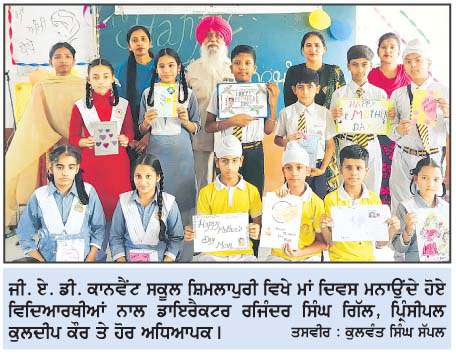 Happy
HAPPY
MOTHER
DAY
Happy
Mother's
Day Mom
ਜੀ. ਏ. ਡੀ. ਕਾਨਵੈਂਟ ਸਕੂਲ ਸ਼ਿਮਲਾਪੁਰੀ ਵਿਖੇ ਮਾਂ ਦਿਵਸ ਮਨਾਉਂਦੇ ਹੋਏ
ਵਿਦਿਆਰਥੀਆਂ ਨਾਲ ਡਾਇਰੈਕਟਰ ਰਜਿੰਦਰ ਸਿੰਘ ਗਿੱਲ, ਪ੍ਰਿੰਸੀਪਲ
ਕੁਲਦੀਪ ਕੌਰ ਤੇ ਹੋਰ ਅਧਿਆਪਕ। ਤਸਵੀਰ : ਕੁਲਵੰਤ ਸਿੰਘ ਸੱਪਲ